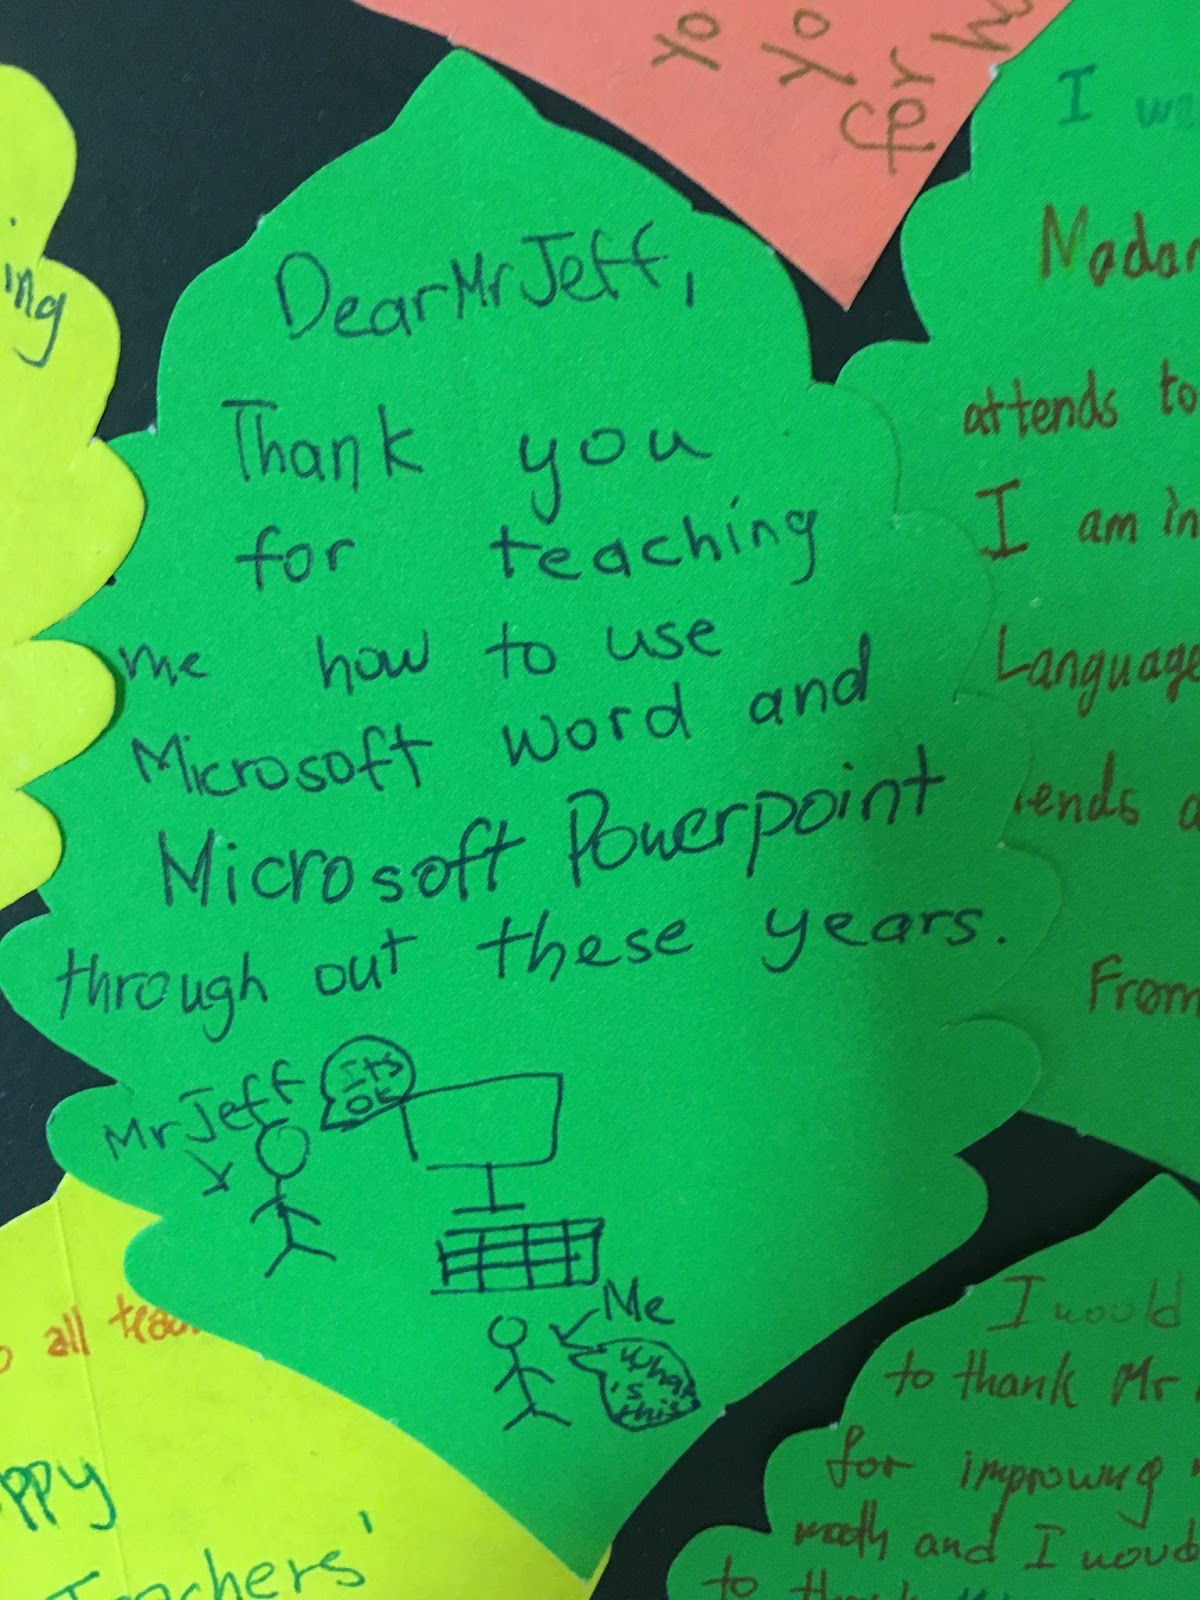 Dear Mr Jeff,
Thank you
for teaching
me how to use
Microsoft Word and
Microsoft Powerpoint
through out these years.
Mr Jeff
Its
OK
Me
What
is
this
ing
yo
yo
for
I
Madam
attends to
I am in
Language
From
all
ppy
Teachers'
I would
to thank Mr
for improwing
math and I
to